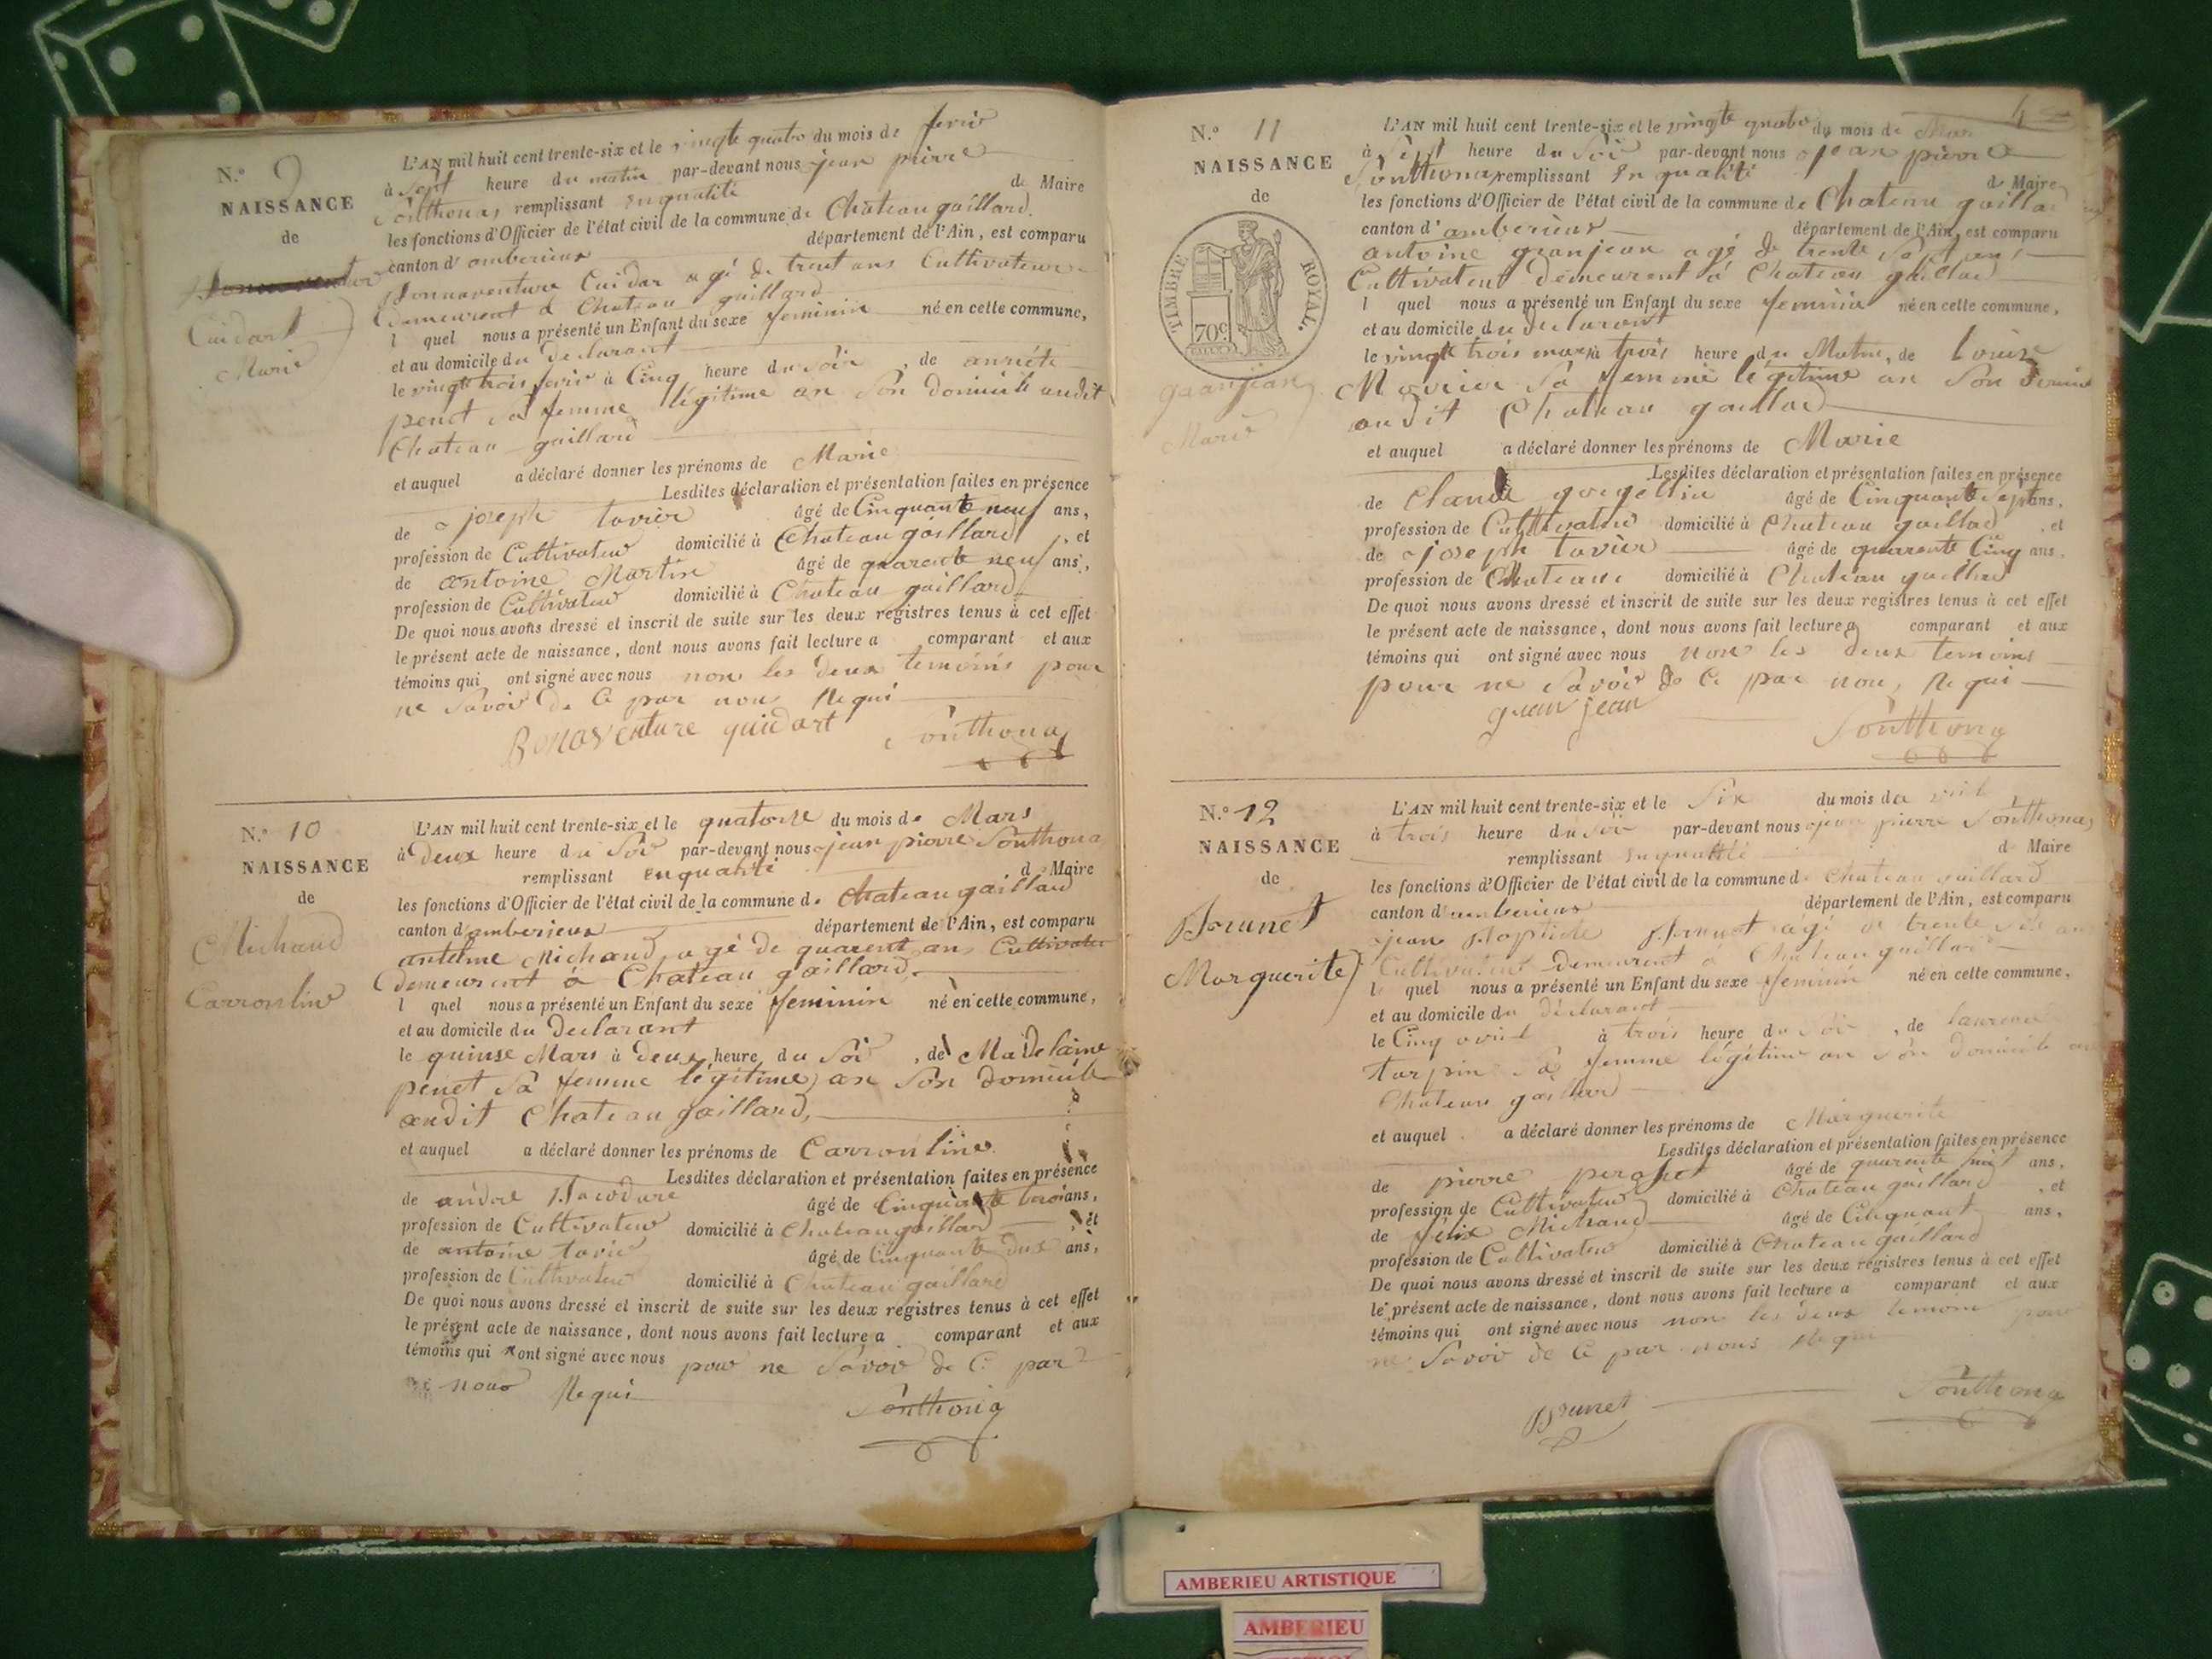 N.º 9
NAISSANCE
de
Cuidart
Marie
L'AN mil huit cent trente-six et le vingte quatre du mois de fevrié
à Sept heure du matin par-devant nous jean pierre
Sonthonas remplissant en qualité de Maire
les fonctions d'Officier de l'état civil de la commune de Chateau gaillard
canton d'amberieux département de l'Ain, est comparu
Bonnaventure Cuidar agé de trent ans Cultivateur
demeurent à Chateau gaillard
l quel nous a présenté un Enfant du sexe feminin né en cette commune,
et au domicile du Declarant
le vingte trois fevrié à Cinq heure du Soir, de
penet Sa femme légitime an Son domicile audit
Chateau gaillard
et auquel a déclaré donner les prénoms de Marie
Lesdites déclaration et présentation faites en présence
de joseph tavier âgé de Cinquante neuf ans,
profession de Cultivateur domicilié à Chateau gaillard, et
de antoine Martin âgé de quarente neuf ans,
profession de Cultivateur domicilié à Chateau gaillard
De quoi nous avons dressé et inscrit de suite sur les deux registres tenus à cet effet
le présent acte de naissance, dont nous avons fait lecture a comparant et aux
témoins qui ont signé avec nous non les deux temoins pour
ne Savoir de Ce par nous Requi
Bonaventure guidart Sonthonas
N.º 10
NAISSANCE
de
Michaud
Carronline
L'AN mil huit cent trente-six et le quatorse du mois de Mars
à Deux heure du Soir par-devant nous jean pierre Sonthona
remplissant en qualité d Maire
les fonctions d'Officier de l'état civil de la commune de Chateau gaillard
canton d'amberieux département de l'Ain, est comparu
antelme Michaud agé de quarent ans Cultivater
demeurent à Chateau gaillard
l quel nous a présenté un Enfant du sexe feminin né en cette commune,
et au domicile du Declarant
le quinse Mars à Deux heure du Soir, de Madelaine
penet Sa femme légitime an Son Domicile
audit Chateau gaillard,
et auquel a déclaré donner les prénoms de Carronline
Lesdites déclaration et présentation faites en présence
de andre âgé de Cinquante trois ans,
profession de Cultivateur domicilié à Chateau gaillard, et
de antoine tavié âgé de Cinquante Deux ans,
profession de Cultivateur domicilié à Chateau gaillard
De quoi nous avons dressé et inscrit de suite sur les deux registres tenus à cet effet
le présent acte de naissance, dont nous avons fait lecture a comparant et aux
témoins qui ont signé avec nous pour ne Savoir de Ce par
nous Requi
Sonthona
4
N.º 11
NAISSANCE
de
TIMBRE ROYAL.
70c.
granjean
Marie
L'AN mil huit cent trente-six et le vingte quatre du mois de Mar
à Sept heure du Soir par-devant nous jean pierre
Sonthonas remplissant En qualité de Maire
les fonctions d'Officier de l'état civil de la commune de Chateau gaillar
canton d'amberieux département de l'Ain, est comparu
antoine granjean agé de trente Sept ans
Cultivateur demeurent à Chateau gaillar
l quel nous a présenté un Enfant du sexe feminin né en cette commune,
et au domicile du declarant
le vingte trois mars à trois heure du Matin, de Louise
Movrier Sa femme légitime an Son Domicile
audit Chateau gaillar
et auquel a déclaré donner les prénoms de Marie
Lesdites déclaration et présentation faites en présence
de Claude âgé de Cinquante Sept ans,
profession de Cultivateur domicilié à Chateau gaillard, et
de joseph tavier âgé de quarente Cinq ans,
profession de domicilié à Chateau gaillard
De quoi nous avons dressé et inscrit de suite sur les deux registres tenus à cet effet
le présent acte de naissance, dont nous avons fait lecture a comparant et aux
témoins qui ont signé avec nous non les deux temoins
pour ne Savoir de Ce par nous Requi
granjean Sonthona
N.º 12
NAISSANCE
de
Brunet
Marguerite
L'AN mil huit cent trente-six et le Six du mois da vril
à trois heure du Soir par-devant nous jean pierre Sonthonas
remplissant En qualité d Maire
les fonctions d'Officier de l'état civil de la commune d Chateau gaillard
canton d'amberieux département de l'Ain, est comparu
jean Baptiste Brunet agé de trente
Cultivateur demeurent à Chateau gaillar
l quel nous a présenté un Enfant du sexe feminin né en cette commune,
et au domicile du declarant
le Cinq avril à trois heure du Soir, de
turpin Sa femme légitime an Son domicile
Chateau gaillard
et auquel a déclaré donner les prénoms de Marguerite
Lesdites déclaration et présentation faites en présence
de pierre âgé de quarente huit ans,
profession de Cultivateur domicilié à Chateau gaillard, et
de félix Michaud âgé de Cinquant ans,
profession de Cultivateur domicilié à Chateau gaillard
De quoi nous avons dressé et inscrit de suite sur les deux registres tenus à cet effet
le présent acte de naissance, dont nous avons fait lecture a comparant et aux
témoins qui ont signé avec nous non les deux temoins pour
ne Savoir de Ce par nous Requi
Brunet Sonthona
AMBERIEU ARTISTIQUE
AMBERIEU